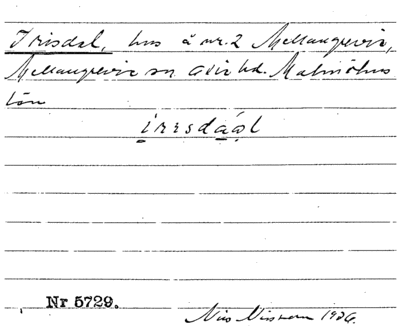 Irisdal, hus å nr. 2 Mellangrevie,
Mellangrevie sn Oxie hd. Malmöhus
län
irisdāạl
Nr 5729.
Nils Nilsson 1926.